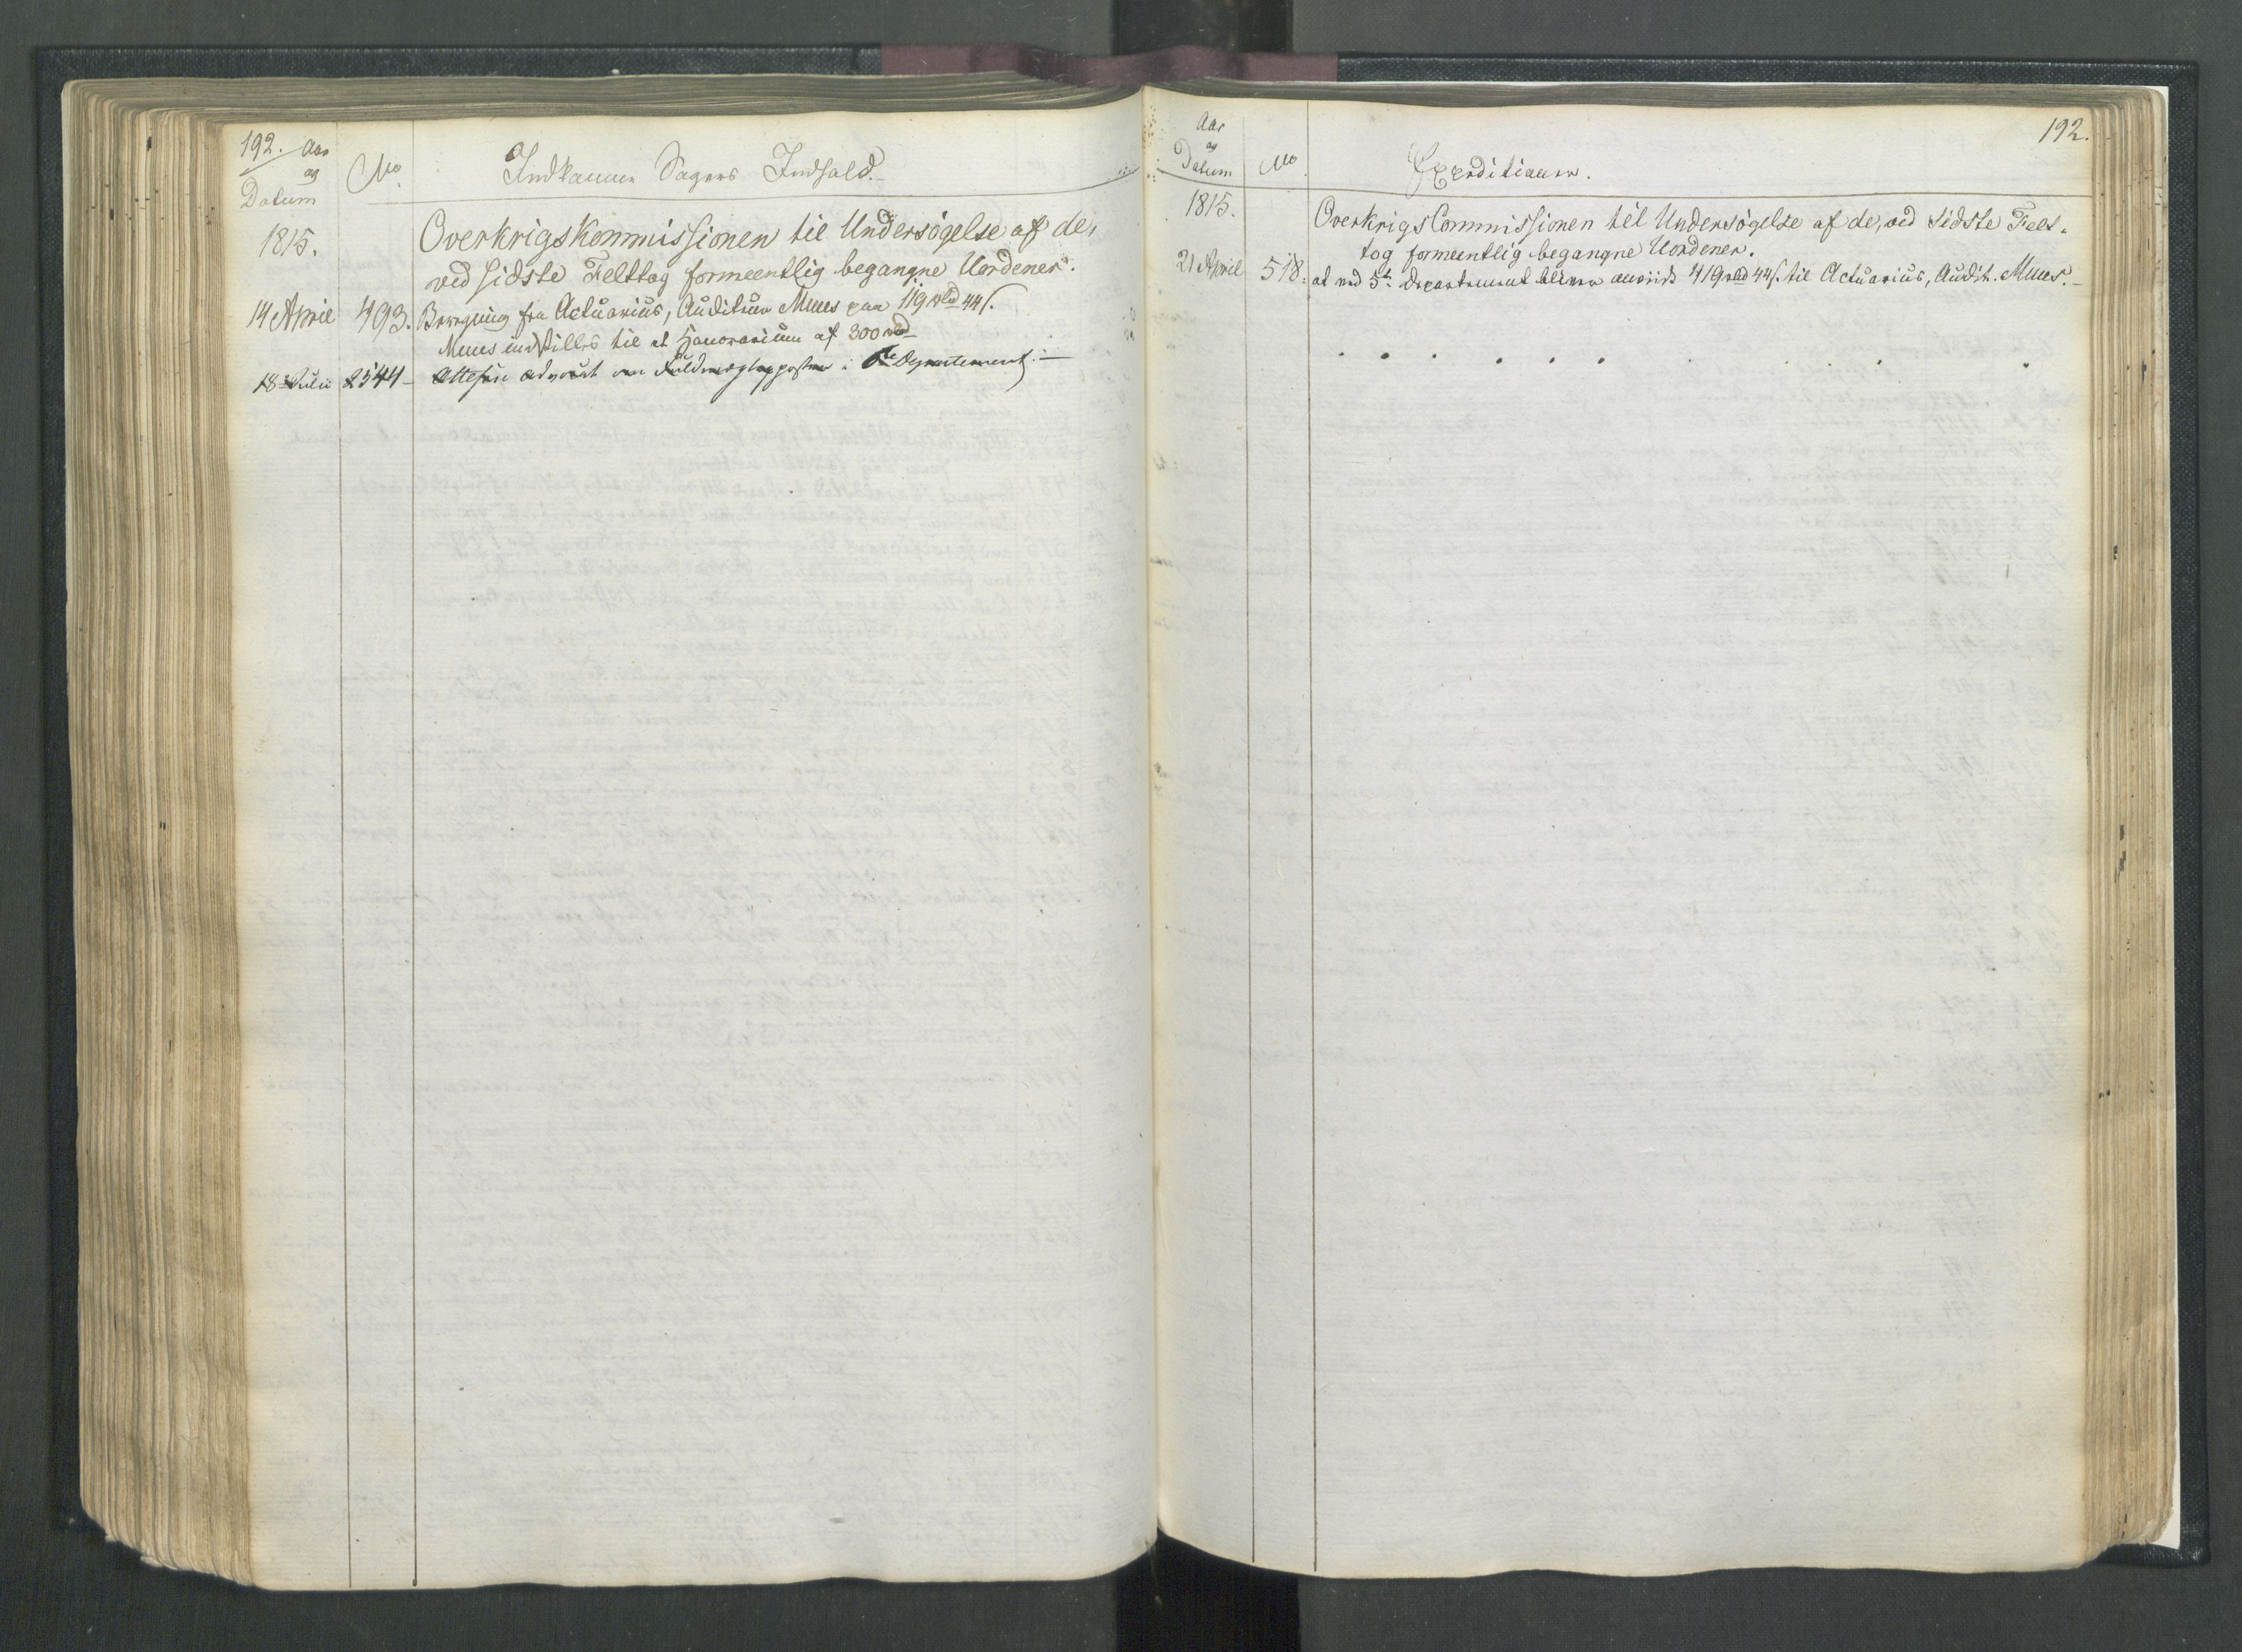 192. Aar
og
Datum
No
Indkomne Sagers Indhold.
1815.
Overkrigskommissionen til Undersögelse af de,
ved sidste Felttog formeentlig begangne Uordener.
14 April 493. Beregning fra Actuarius, Auditeur Mues paa 119 rbd 44 s.
Mues indstilles til et Honorarium af 300 rbd
18 Julii 2544 - om Fuldmægtigposten i Departement.
Aar
og
Datum
No
Expeditionen.
192.
1815.
OverkrigsCommissionen til Undersögelse af de, ved sidste Felt-
tog formeentlig begangne Uordener.
21 April 518. at ved 5te Departement bliver anviist 419 rbd 44 s. til Actuarius, Audit. Mues.